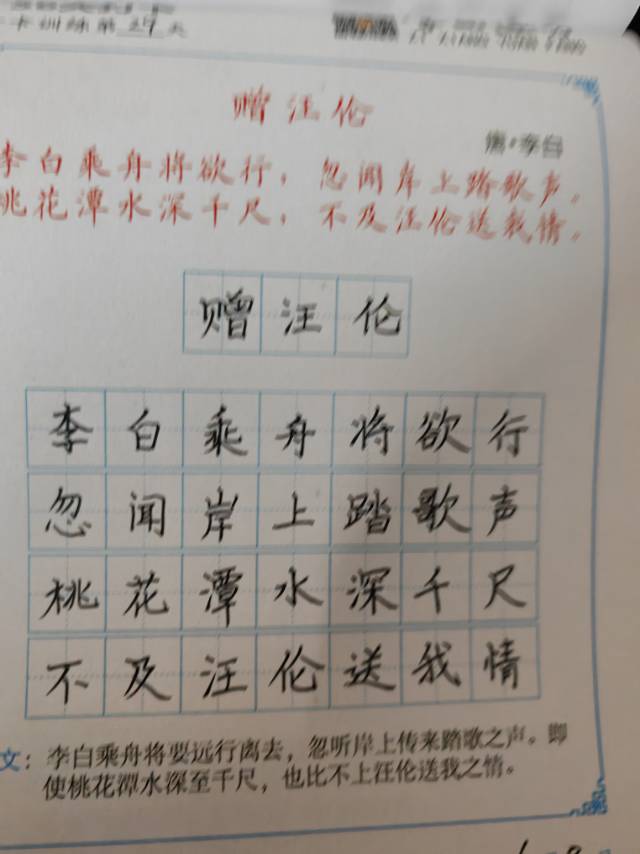 卡训练第29天
赠汪伦
唐·李白
李白乘舟将欲行，忽闻岸上踏歌声。
桃花潭水深千尺，不及汪伦送我情。
赠汪伦
李白乘舟将欲行
忽闻岸上踏歌声
桃花潭水深千尺
不及汪伦送我情
文：李白乘舟将要远行离去，忽听岸上传来踏歌之声。即
使桃花潭水深至千尺，也比不上汪伦送我之情。